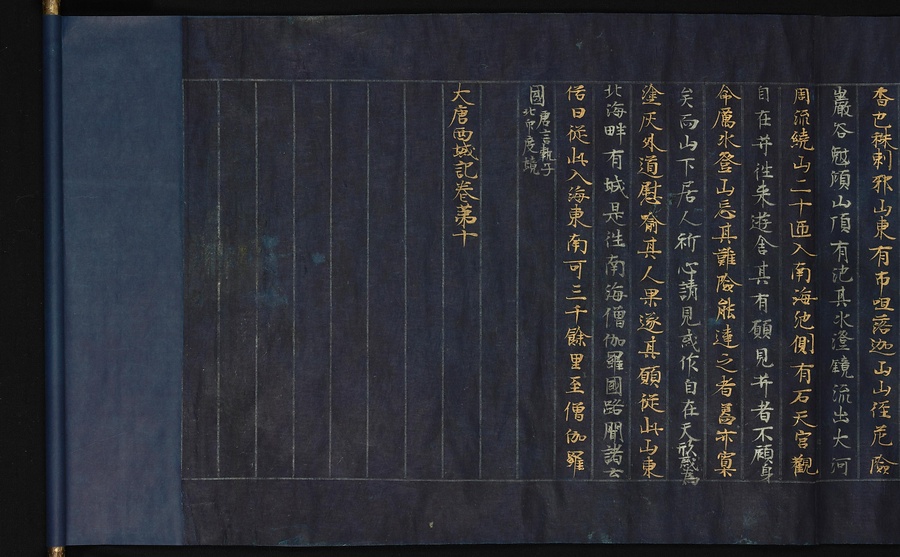 香也秣剌耶山東有布呾落迦山山徑危險
巖谷敧傾山頂有池其水澄鏡流出大河
周流繞山二十匝入南海池側有石天宮觀
自在𦬇往来遊舍其有願見𦬇者不顧身
命厲水登山忘其難險能達之者蓋亦寡
矣而山下居人祈心請見或作自在天形或為
塗灰外道慰喻其人果遂其願從此山東
北海畔有城是往南海僧伽羅國路聞諸土
俗曰從此入海東南可三千餘里至僧伽羅
國
唐言執子
北印度境
大唐西域記卷第十